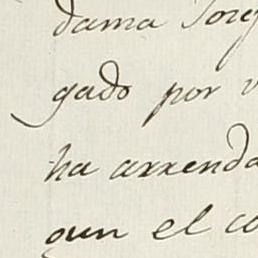 dama Jose
gado por v
ha arrenda
gun el co